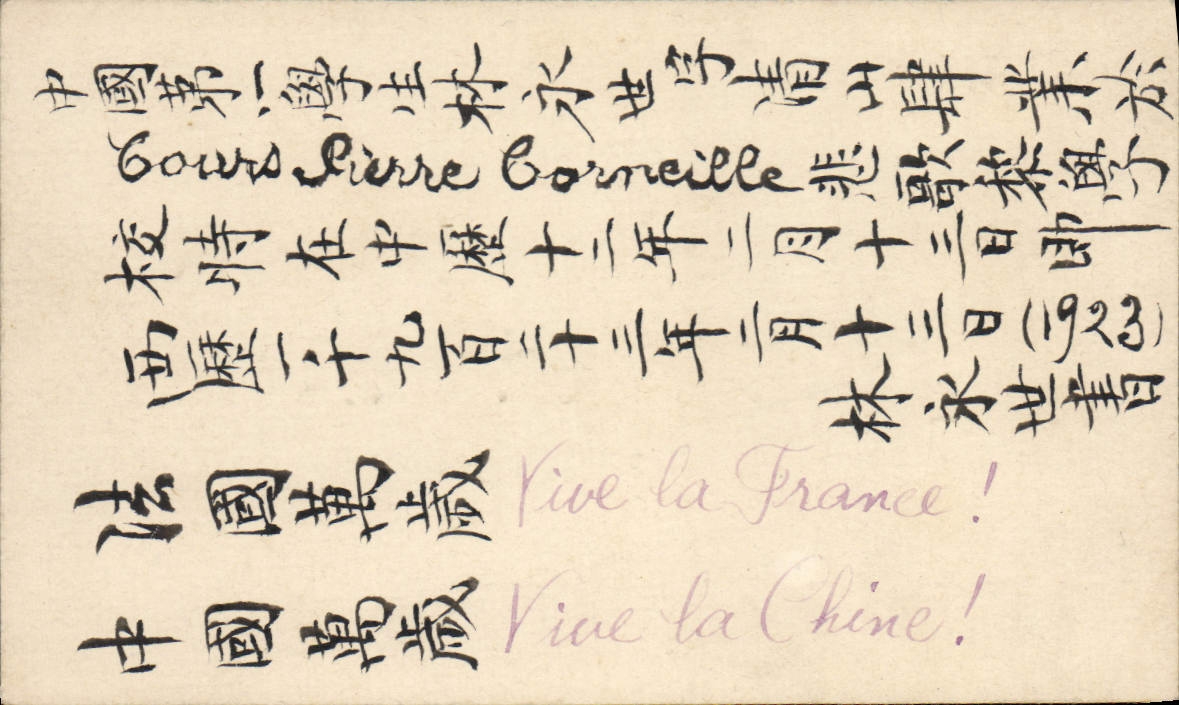 中國第一學生林永世字青山肄業於
Cours Pierre Corneille 悲歌黎學
校時在中歷十二年二月十三日即
西歷一千九百二十三年二月十三日 (1923)
林永世書
法國萬歲 Vive la France !
中國萬歲 Vive la Chine !